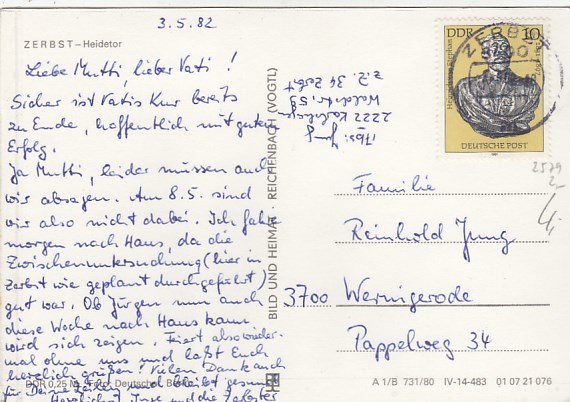 3.5.82
ZERBST – Heidetor
Liebe Mutti, lieber Vati!
Sicher ist Vatis Kur bereits
zu Ende, hoffentlich mit gutem
Erfolg.
Ja Mutti, leider müssen auch
wir absagen. Am 8.5. sind
wir also nicht dabei. Ich fahre
morgen nach Haus, da die
Zwischenuntersuchung (hier in
Zerbst wie geplant durchgeführt)
gut war. Ob Jürgen nun auch
diese Woche nach Haus kann,
wird sich zeigen. Feiert also wieder-
mal ohne uns und laßt Euch
herzlich grüßen! Vielen Dank auch
für Deine Zeilen und bleibt gesund
Herzlichst und die Zerbster
DDR 0,25 Foto: Deutscher
BILD UND HEIMAT REICHENBACH (VOGTL)
Abs.: Jung
2222 
z.Z. 34 Zerbst
DDR 10
ZERBST
DEUTSCHE POST
2579
2,-
Familie
Reinhold Jung
3700 Wernigerode
Pappelweg 34
A 1/B 731/80 IV-14-483 01 07 21 076